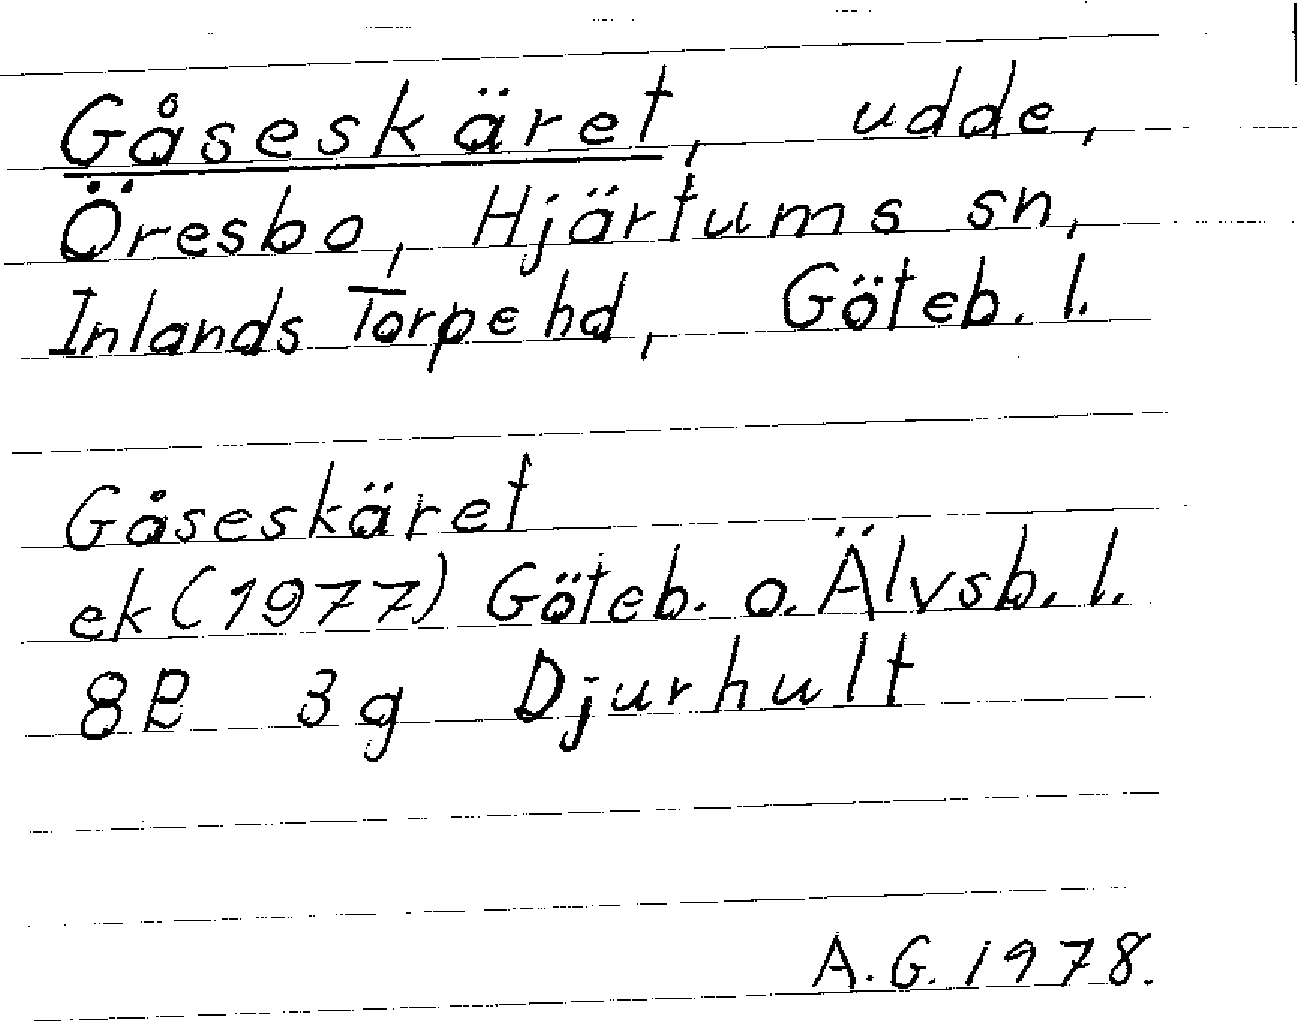 Gåseskäret, udde,
Öresbo, Hjärtums sn,
Inlands Torpe hd, Göteb. l.
Gåseskäret
ek (1977) Göteb. o. Älvsb. l.
8B 3g Djurhult
A. G. 1978.